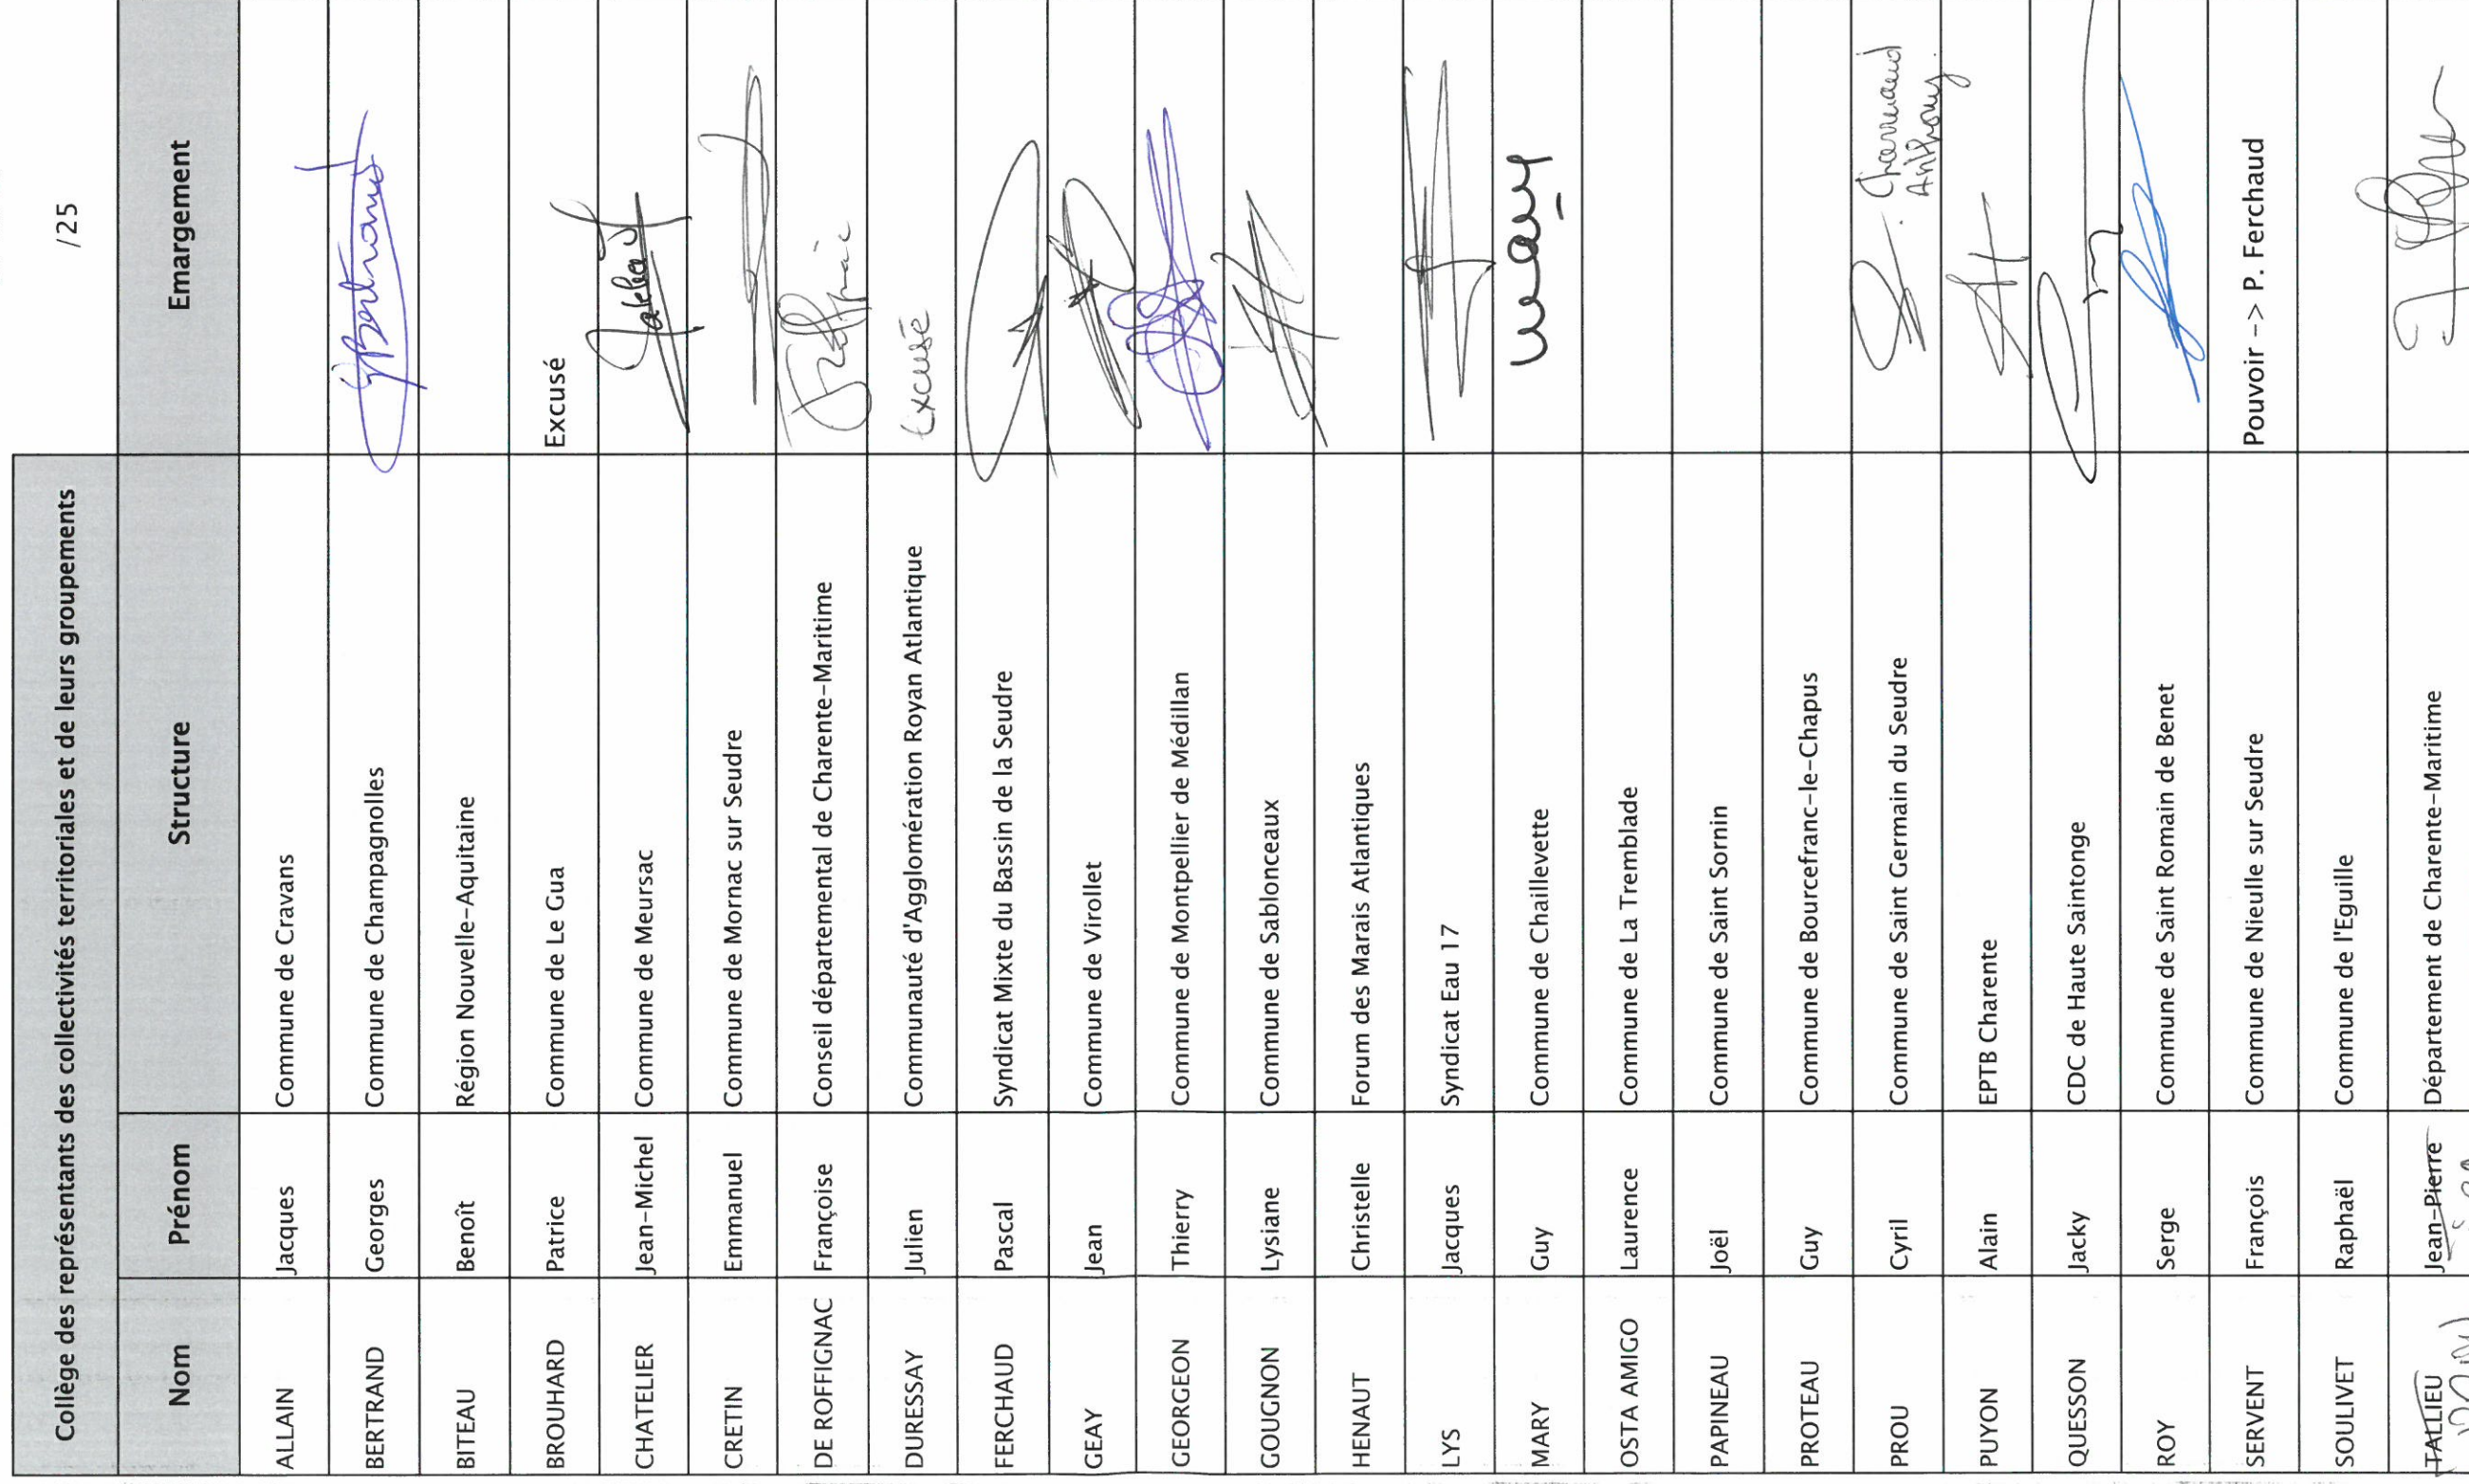 /25
Collège des représentants des collectivités territoriales et de leurs groupements
Nom Prénom Structure Emargement
ALLAIN Jacques Commune de Cravans
BERTRAND Georges Commune de Champagnolles GBertrand
BITEAU Benoît Région Nouvelle-Aquitaine
BROUHARD Patrice Commune de Le Gua Excusé
CHATELIER Jean-Michel Commune de Meursac
CRETIN Emmanuel Commune de Mornac sur Seudre
DE ROFFIGNAC Françoise Conseil départemental de Charente-Maritime
DURESSAY Julien Communauté d'Agglomération Royan Atlantique Excusé
FERCHAUD Pascal Syndicat Mixte du Bassin de la Seudre
GEAY Jean Commune de Virollet
GEORGEON Thierry Commune de Montpellier de Médillan
GOUGNON Lysiane Commune de Sablonceaux
HENAUT Christelle Forum des Marais Atlantiques
LYS Jacques Syndicat Eau 17
MARY Guy Commune de Chaillevette Mary
OSTA AMIGO Laurence Commune de La Tremblade
PAPINEAU Joël Commune de Saint Sornin
PROTEAU Guy Commune de Bourcefranc-le-Chapus
PROU Cyril Commune de Saint Germain du Seudre Anthony
PUYON Alain EPTB Charente
QUESSON Jacky CDC de Haute Saintonge
ROY Serge Commune de Saint Romain de Benet
SERVENT François Commune de Nieulle sur Seudre Pouvoir -> P. Ferchaud
SOULIVET Raphaël Commune de l'Eguille
TALLIEU Jean-Pierre Département de Charente-Maritime